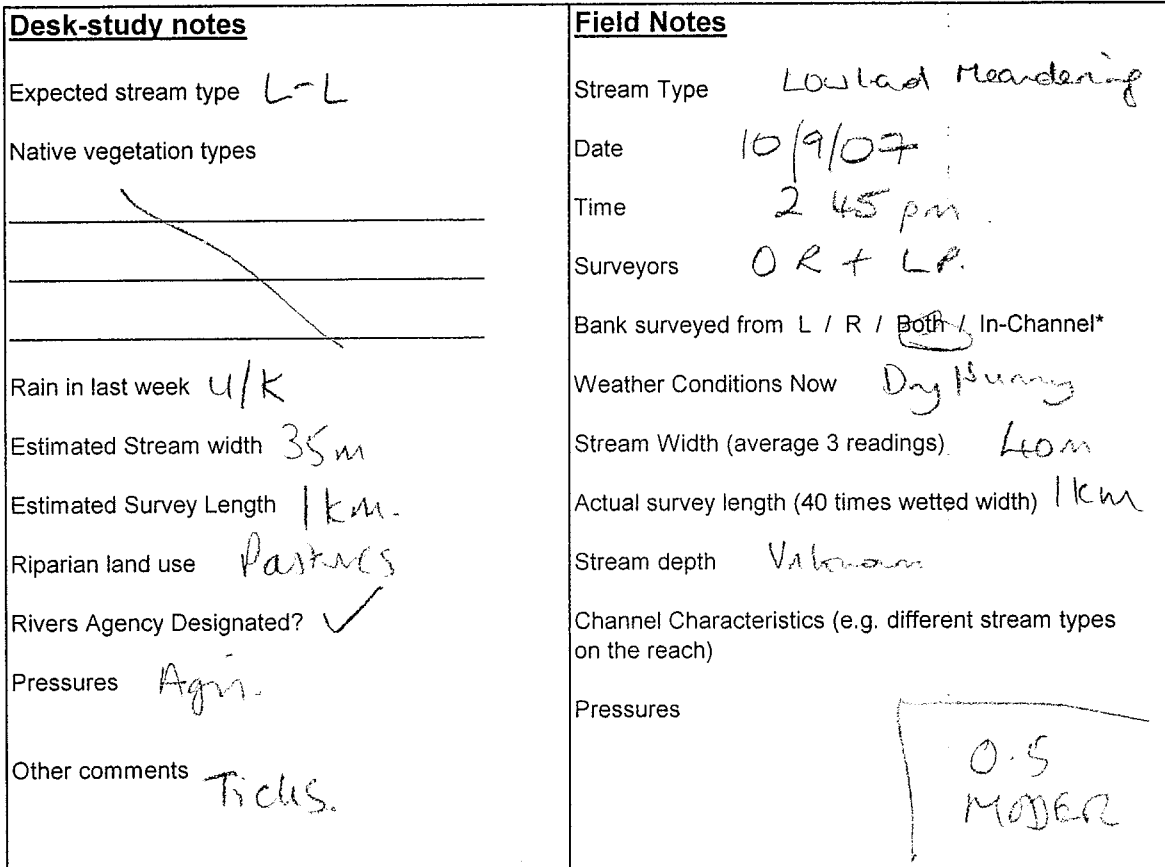 Desk-study notes
Expected stream type L-L
Native vegetation types
Rain in last week U/K
Estimated Stream width 35m
Estimated Survey Length 1km.
Riparian land use Pastures
Rivers Agency Designated? ✓
Pressures Agri.
Other comments Ticks.
Field Notes
Stream Type Lowlad Meandering
Date 10/9/07
Time 2 45 pm.
Surveyors O R + LP.
Bank surveyed from L / R / Both / In-Channel*
Weather Conditions Now Dry
Stream Width (average 3 readings) 40m
Actual survey length (40 times wetted width) 1km
Stream depth Unknown
Channel Characteristics (e.g. different stream types
on the reach)
Pressures
0.5
MODER